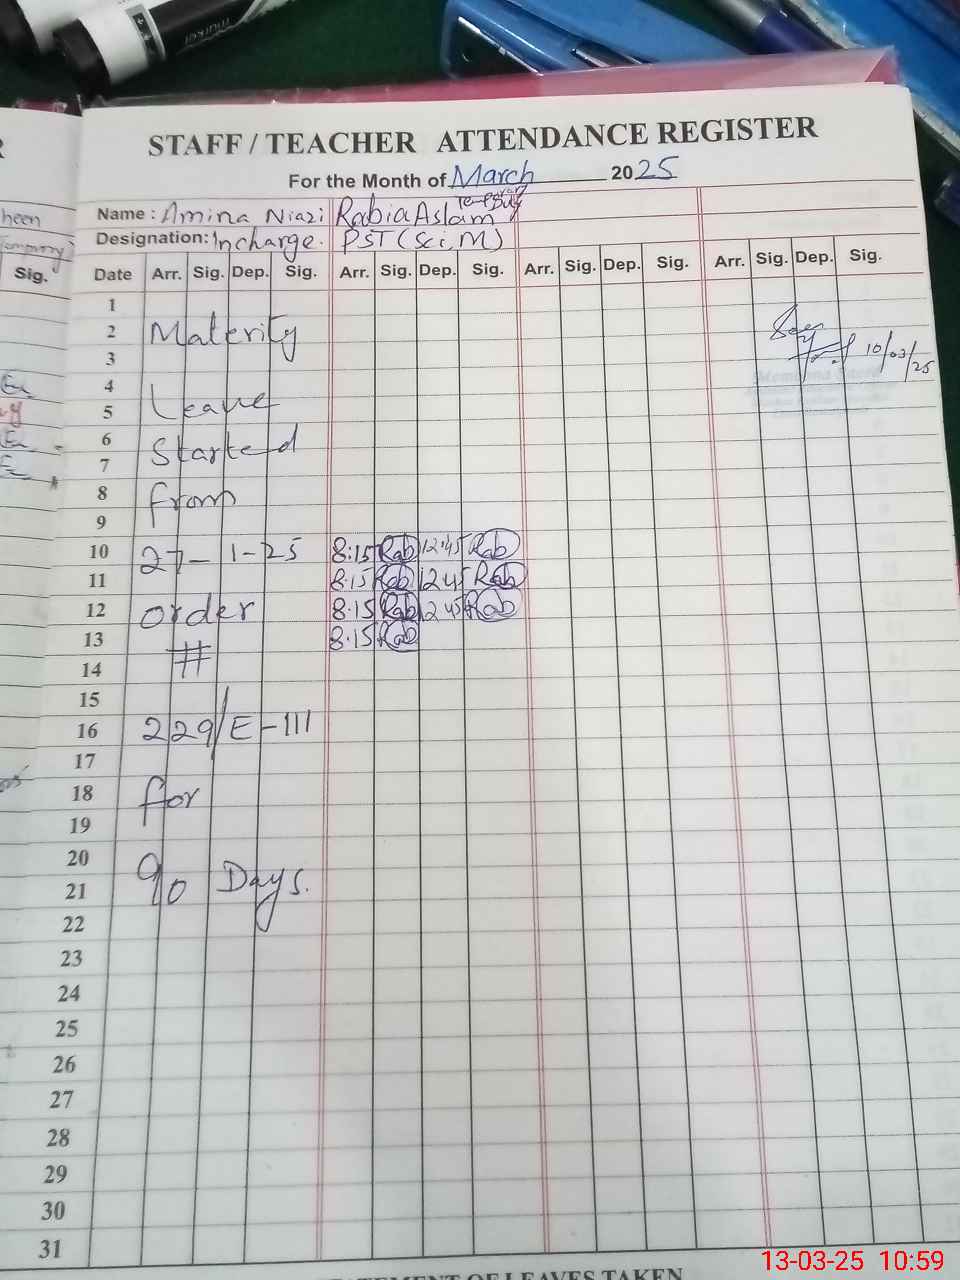 STAFF / TEACHER ATTENDANCE REGISTER
For the Month of March 2025
Name : Amina Niazi Rabia Aslam
Designation: Incharge. PST (Sci, M)
Date Arr. Sig. Dep. Sig. Arr. Sig. Dep. Sig. Arr. Sig. Dep. Sig. Arr. Sig. Dep. Sig.
heen
Sig.
1
2 Maternity Seen
3 10/03/25
4
5 Leave
6
7 Started
8 from
9
10 27-1-25 8:15 Rab 12:45 Rab
11 8:15 Rab 12 45 Rab
12 order 8:15 Rab 12 45 Rab
13 8:15 Rab
14 #
15
16 229/E-III
17
18 for
19
20
21 90 Days.
22
23
24
25
26
27
28
29
30
31
STATEMENT OF LEAVES TAKEN
marker
13-03-25 10:59